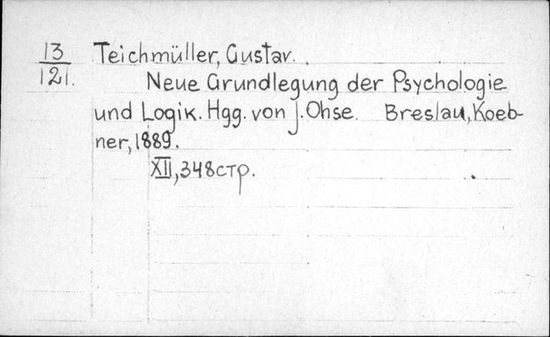 13 Teichmüller, Gustav.
121. Neue Grundlegung der Psychologie
und Logik. Hgg. von J. Ohse. Breslau, Koeb-
ner, 1889.
XII, 348 стр.